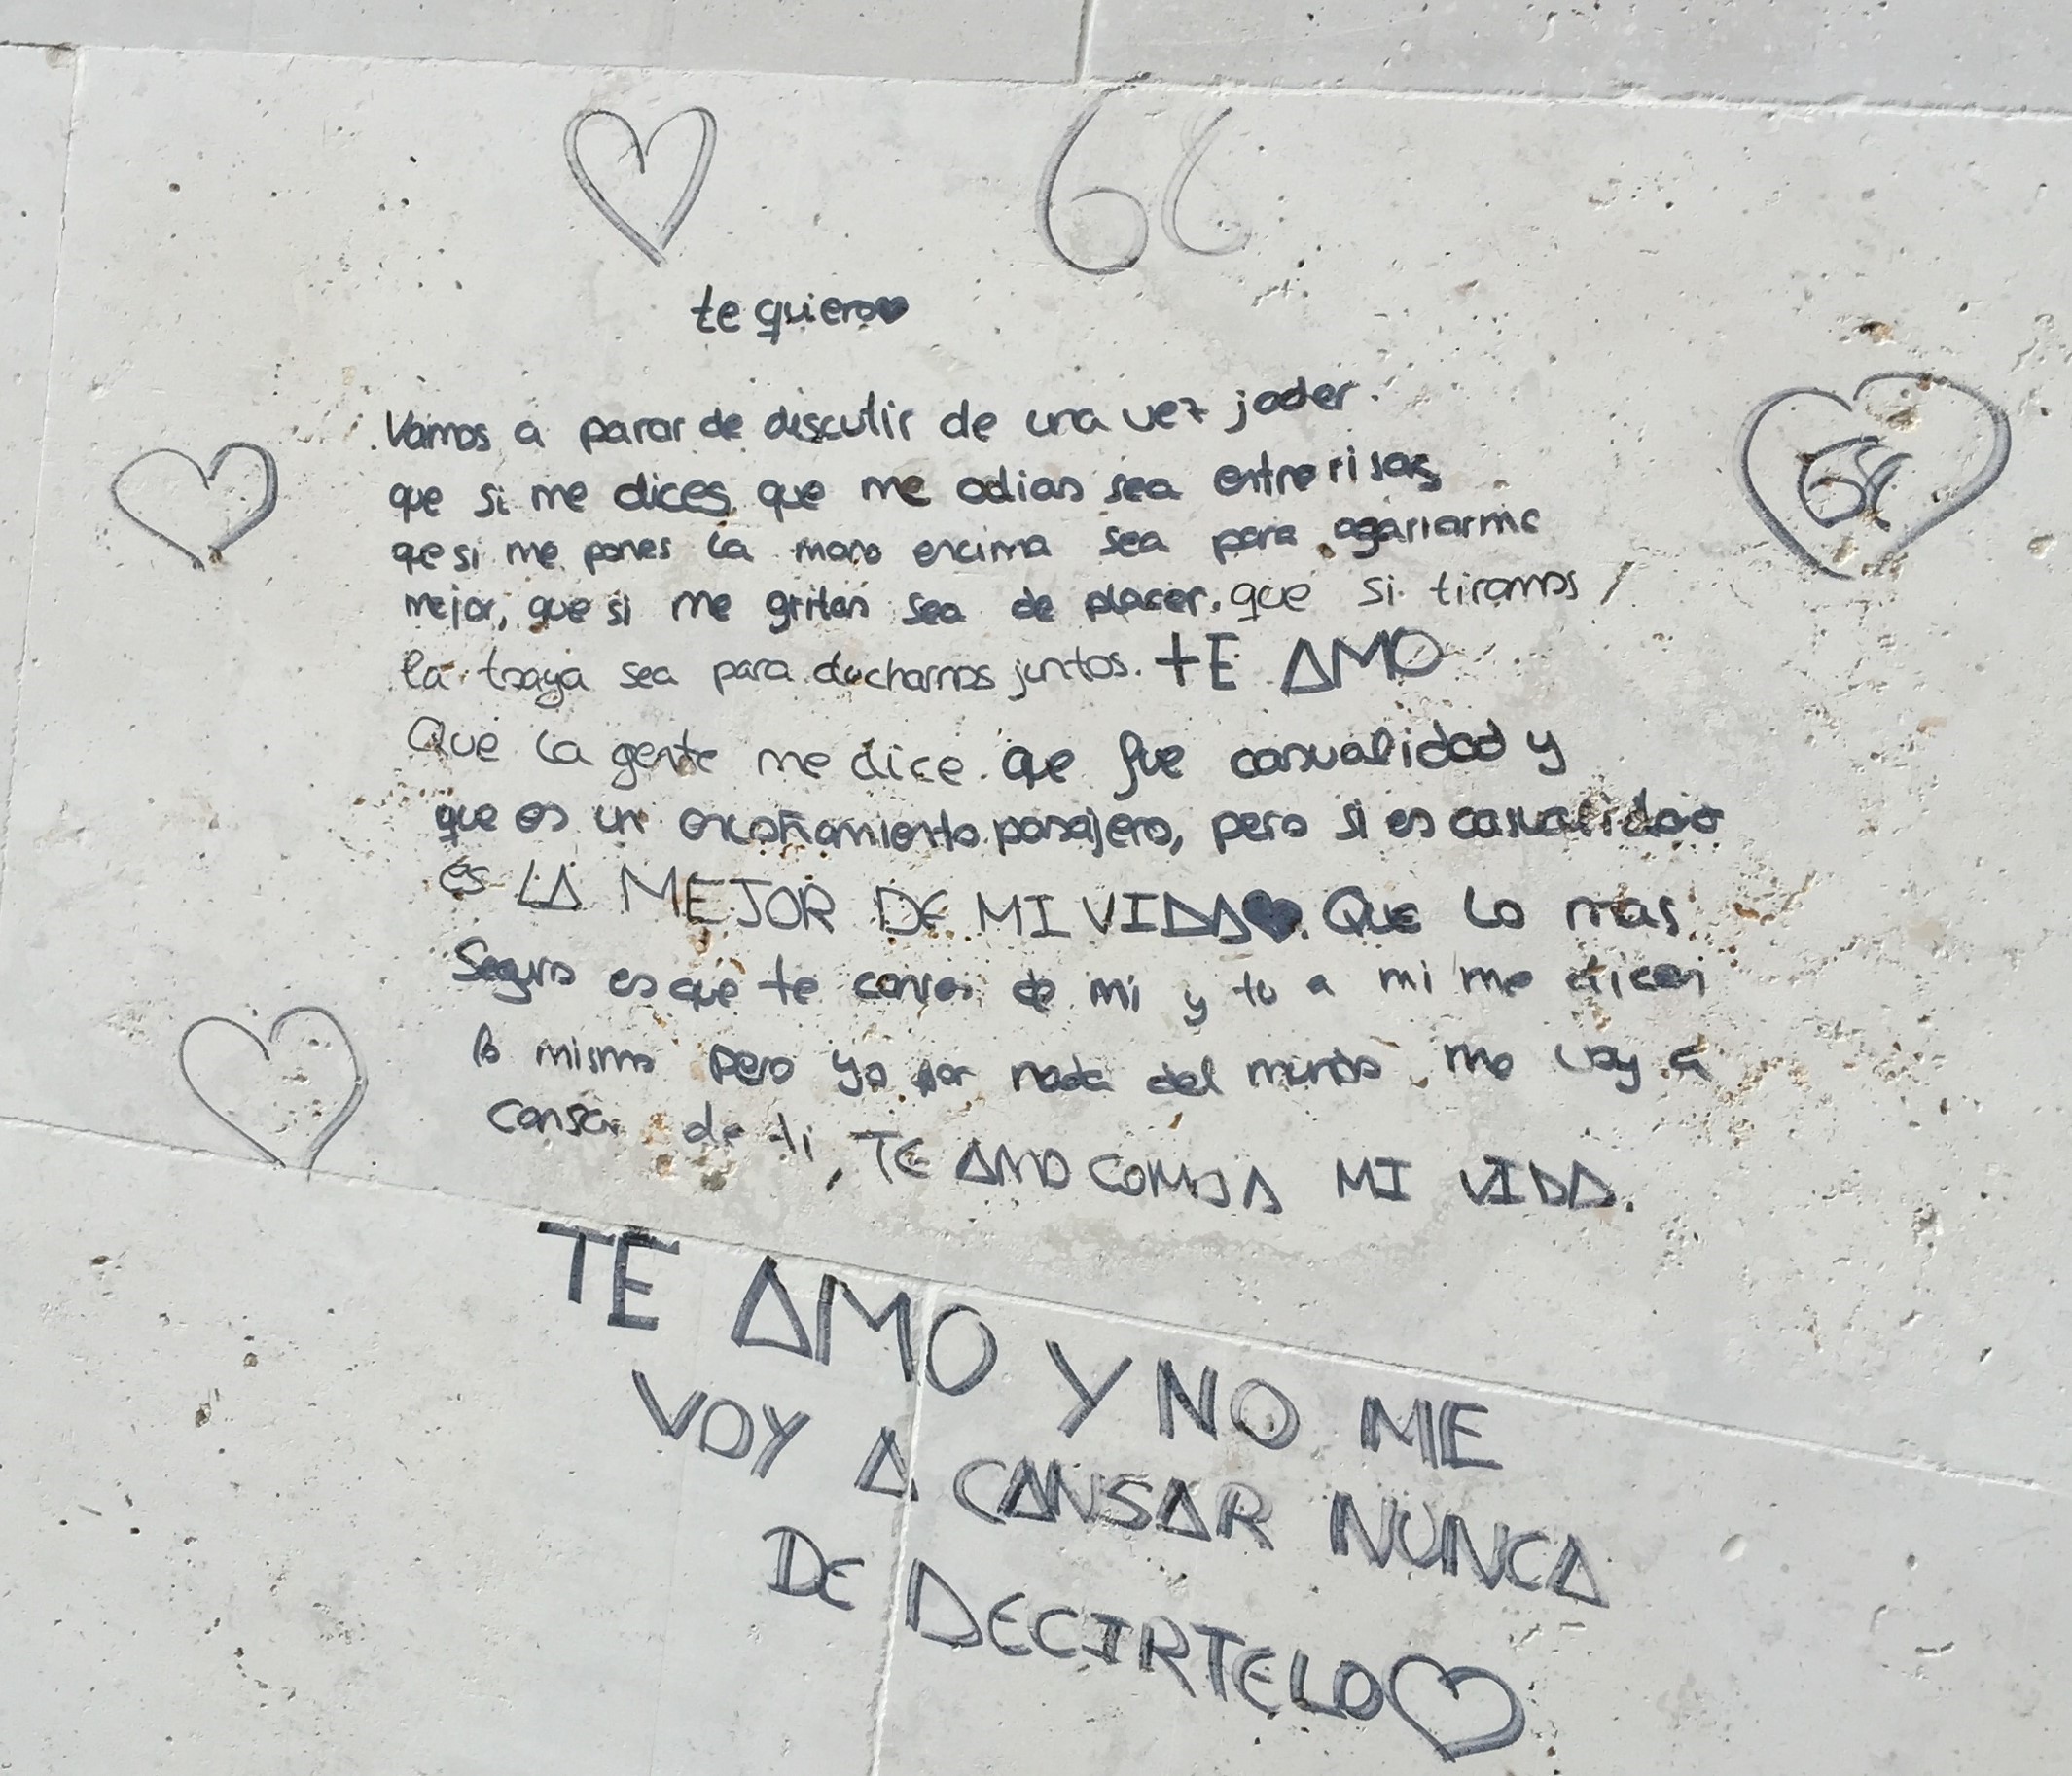 66
te quiero♥
Vamos a parar de discutir de una vez joder.
que si me dices que me odias sea entre risas
que si me pones la mano encima sea para agarrarme
mejor, que si me gritas sea de placer. que si tiramos
la toaya sea para ducharnos juntos. TE AMO
Que la gente me dice que fue casualidad y
que es un encoñamiento pasajero, pero si es casualidad
es LA MEJOR DE MI VIDA♥. Que lo mas
Seguro es que te canses de mi y tu a mi me dices
lo mismo pero yo por nada del mundo me voy a
cansar de ti, TE AMO COMO A MI VIDA.
TE AMO Y NO ME
VOY A CANSAR NUNCA
DE DECIRTELO♡